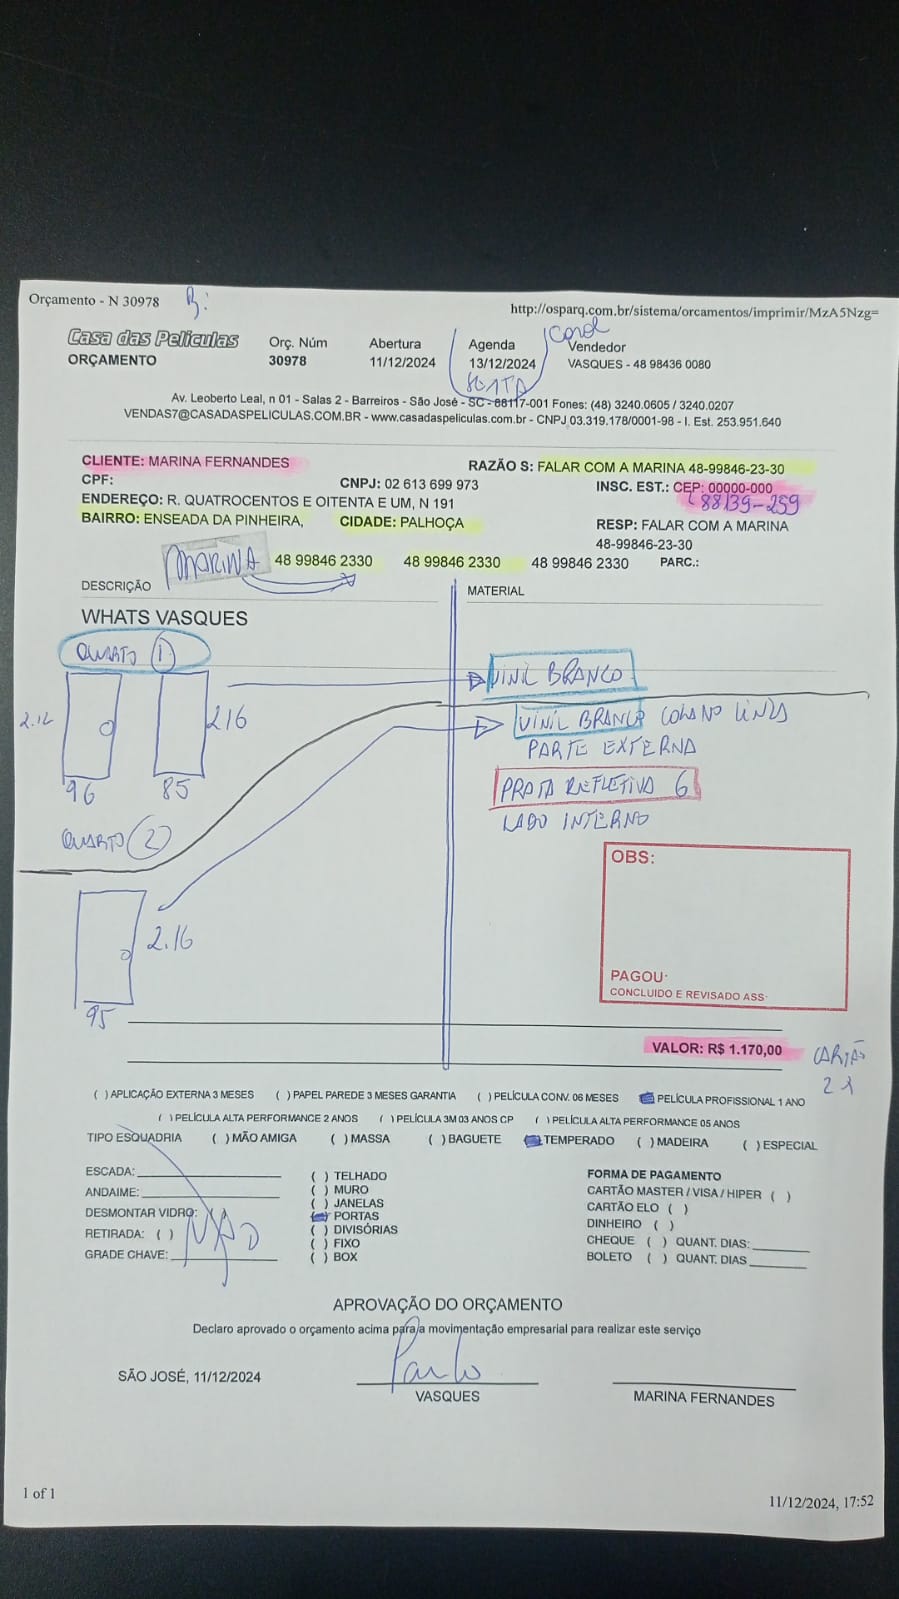 Orçamento - N 30978
http://osparq.com.br/sistema/orcamentos/imprimir/MzA5Nzg=
Casa das Películas
ORÇAMENTO
Orç. Núm
30978
Abertura
11/12/2024
Agenda
13/12/2024
SEXTA
Carol
Vendedor
VASQUES - 48 98436 0080
Av. Leoberto Leal, n 01 - Salas 2 - Barreiros - São José - SC - 88117-001 Fones: (48) 3240.0605 / 3240.0207
VENDAS7@CASADASPELICULAS.COM.BR - www.casadaspeliculas.com.br - CNPJ 03.319.178/0001-98 - I. Est. 253.951.640
CLIENTE: MARINA FERNANDES
RAZÃO S: FALAR COM A MARINA 48-99846-23-30
CPF:
CNPJ: 02 613 699 973
INSC. EST.: CEP: 00000-000
88139-259
ENDEREÇO: R. QUATROCENTOS E OITENTA E UM, N 191
BAIRRO: ENSEADA DA PINHEIRA,
CIDADE: PALHOÇA
RESP: FALAR COM A MARINA
48-99846-23-30
MARINA 48 99846 2330 48 99846 2330 48 99846 2330 PARC.:
DESCRIÇÃO
MATERIAL
WHATS VASQUES
QUARTO 1
VINIL BRANCO
2.16
216
96
85
VINIL BRANCO
PARTE EXTERNA
PRATA REFLETIVA 6
LADO INTERNO
QUARTO 2
2.16
95
OBS:
PAGOU:
CONCLUIDO E REVISADO ASS:
VALOR: R$ 1.170,00
CARTÃO
2X
( ) APLICAÇÃO EXTERNA 3 MESES ( ) PAPEL PAREDE 3 MESES GARANTIA ( ) PELÍCULA CONV. 06 MESES PELÍCULA PROFISSIONAL 1 ANO
( ) PELÍCULA ALTA PERFORMANCE 2 ANOS ( ) PELÍCULA 3M 03 ANOS CP ( ) PELÍCULA ALTA PERFORMANCE 05 ANOS
TIPO ESQUADRIA ( ) MÃO AMIGA ( ) MASSA ( ) BAGUETE TEMPERADO ( ) MADEIRA ( ) ESPECIAL
ESCADA:
ANDAIME:
DESMONTAR VIDRO: ( )
RETIRADA: ( )
GRADE CHAVE:
NÃO
( ) TELHADO
( ) MURO
( ) JANELAS
PORTAS
( ) DIVISÓRIAS
( ) FIXO
( ) BOX
FORMA DE PAGAMENTO
CARTÃO MASTER / VISA / HIPER ( )
CARTÃO ELO ( )
DINHEIRO ( )
CHEQUE ( ) QUANT. DIAS:
BOLETO ( ) QUANT. DIAS
APROVAÇÃO DO ORÇAMENTO
Declaro aprovado o orçamento acima para a movimentação empresarial para realizar este serviço
SÃO JOSÉ, 11/12/2024
Paulo
VASQUES
MARINA FERNANDES
1 of 1
11/12/2024, 17:52